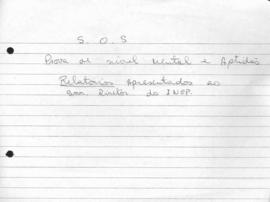 S. O. S
Prova de nível Mental e Aptidão
Relatórios apresentados ao
Snr. Diretor do INEP.